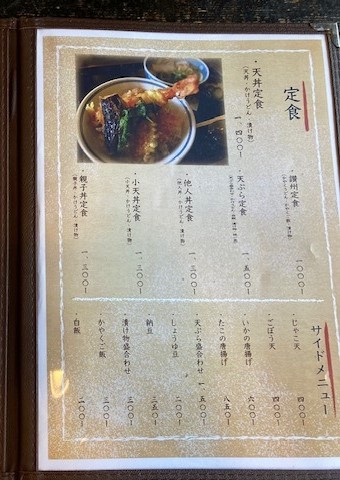 定食
・天丼定食
（天丼・かけうどん・漬け物）
一、四〇〇ー
・讃州定食
一〇〇〇ー
・天ぷら定食
一、五〇〇ー
・他人丼定食
（他人丼・かけうどん・漬け物）
一、三〇〇ー
・小天丼定食
（小天丼・かけうどん・漬け物）
一、三〇〇ー
・親子丼定食
（親子丼・かけうどん・漬け物）
一、三〇〇ー
サイドメニュー
・じゃこ天
四〇〇ー
・ごぼう天
四〇〇ー
・いかの唐揚げ
六〇〇ー
・たこの唐揚げ
八五〇ー
・天ぷら盛合わせ
一、五〇〇ー
・しょうゆ豆
二〇〇ー
・納豆
二五〇ー
・漬け物盛合わせ
三〇〇ー
・かやくご飯
三〇〇ー
・白飯
二〇〇ー